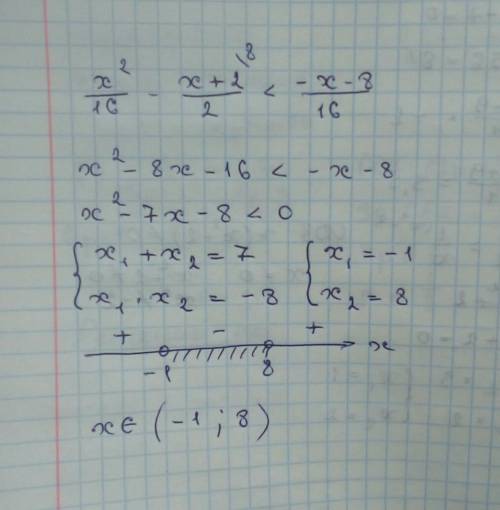 x²/16 - x+2\8/2 < -x-8/16
x² - 8x - 16 < -x - 8
x² - 7x - 8 < 0
{ x₁ + x₂ = 7 { x₁ = -1
{ x₁ · x₂ = -8 { x₂ = 8
+ - +
-1 8 x
x ∈ (-1; 8)